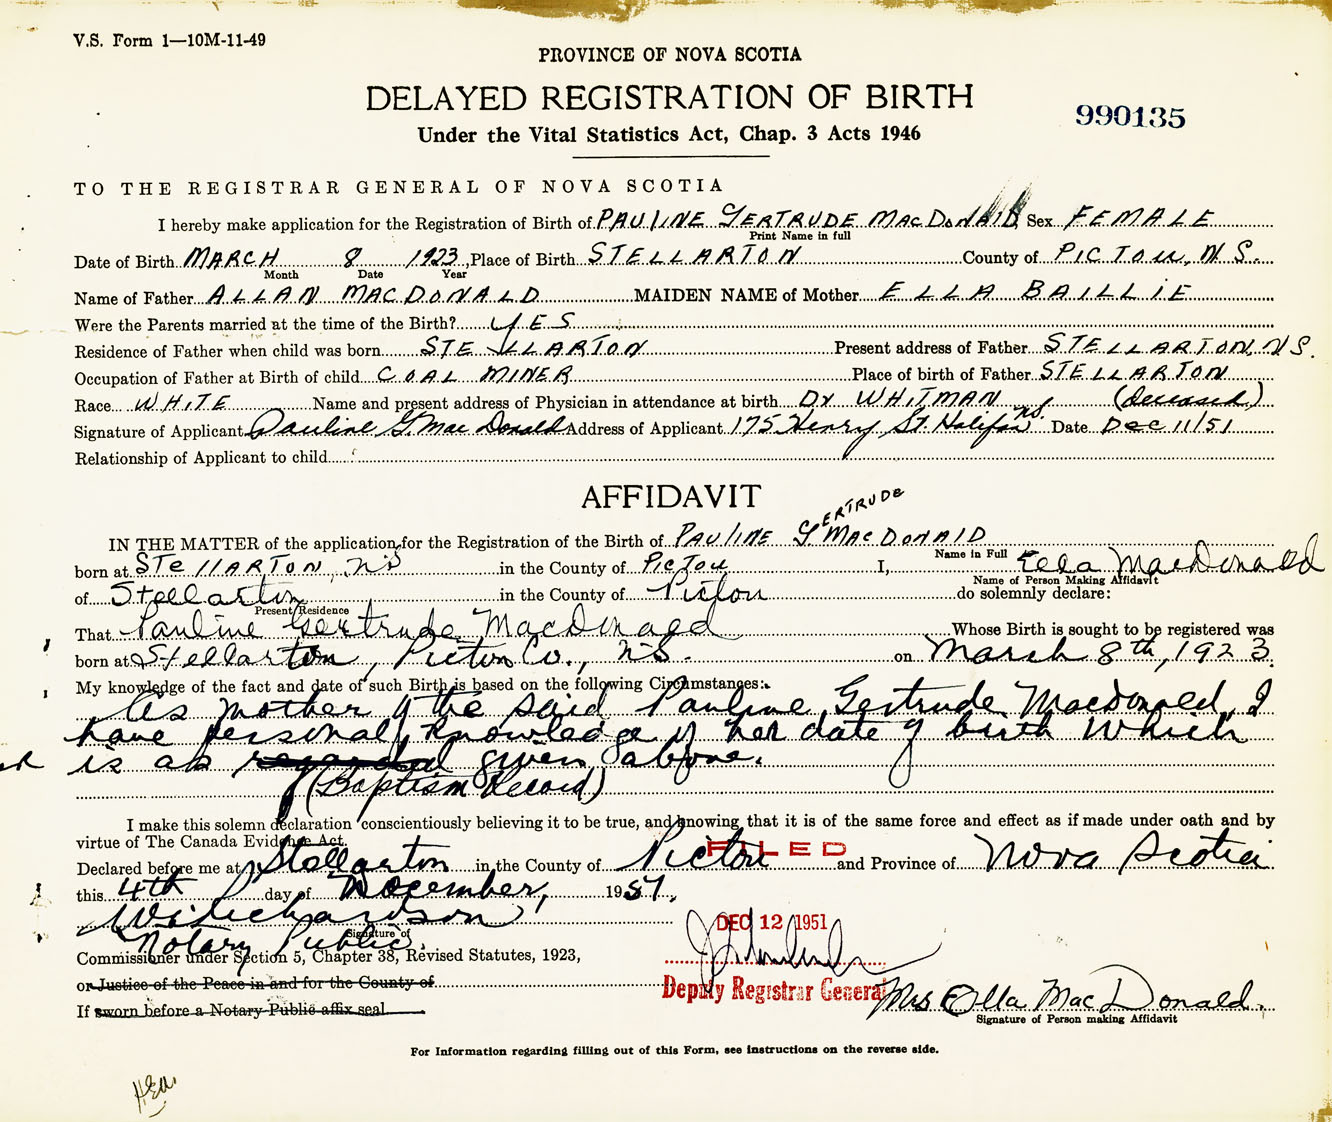 V.S. Form 1—10M-11-49
PROVINCE OF NOVA SCOTIA
DELAYED REGISTRATION OF BIRTH
990135
Under the Vital Statistics Act, Chap. 3 Acts 1946
TO THE REGISTRAR GENERAL OF NOVA SCOTIA
I hereby make application for the Registration of Birth of PAULINE GERTRUDE MACDONALD Sex FEMALE
Print Name in full
Date of Birth MARCH 8 1923, Place of Birth STELLARTON County of PICTOU, N.S.
Month Date Year
Name of Father ALLAN MACDONALD MAIDEN NAME of Mother ELLA BAILLIE
Were the Parents married at the time of the Birth? YES
Residence of Father when child was born STELLARTON Present address of Father STELLARTON, N.S.
Occupation of Father at Birth of child COAL MINER Place of birth of Father STELLARTON
Race WHITE Name and present address of Physician in attendance at birth Dr WHITMAN (deceased)
Signature of Applicant Pauline G. MacDonald Address of Applicant 175 Henry St. Halifax NS. Date DEC 11/51
Relationship of Applicant to child
AFFIDAVIT
IN THE MATTER of the application for the Registration of the Birth of PAULINE GERTRUDE MACDONALD
Name in Full
born at STELLARTON, N.S in the County of PICTOU I, Ella MacDonald
Name of Person Making Affidavit
of Stellarton in the County of Pictou do solemnly declare:
Present Residence
That Pauline Gertrude MacDonald Whose Birth is sought to be registered was
born at Stellarton, Pictou Co., N.S. on March 8th, 1923.
My knowledge of the fact and date of such Birth is based on the following Circumstances:
As mother of the said Pauline Gertrude Macdonald, I
have personal knowledge of her date of birth which
is as given above.
(Baptism Record)
I make this solemn declaration conscientiously believing it to be true, and knowing that it is of the same force and effect as if made under oath and by
virtue of The Canada Evidence Act.
FILED
Declared before me at Stellarton in the County of Pictou and Province of Nova Scotia
this 4th day of December, 1951.
DEC 12 1951
Signature of
Notary Public.
Commissioner under Section 5, Chapter 38, Revised Statutes, 1923,
or Justice of the Peace in and for the County of
Deputy Registrar General
Mrs Ella MacDonald.
If sworn before a Notary Public affix seal
Signature of Person making Affidavit
For Information regarding filling out of this Form, see instructions on the reverse side.